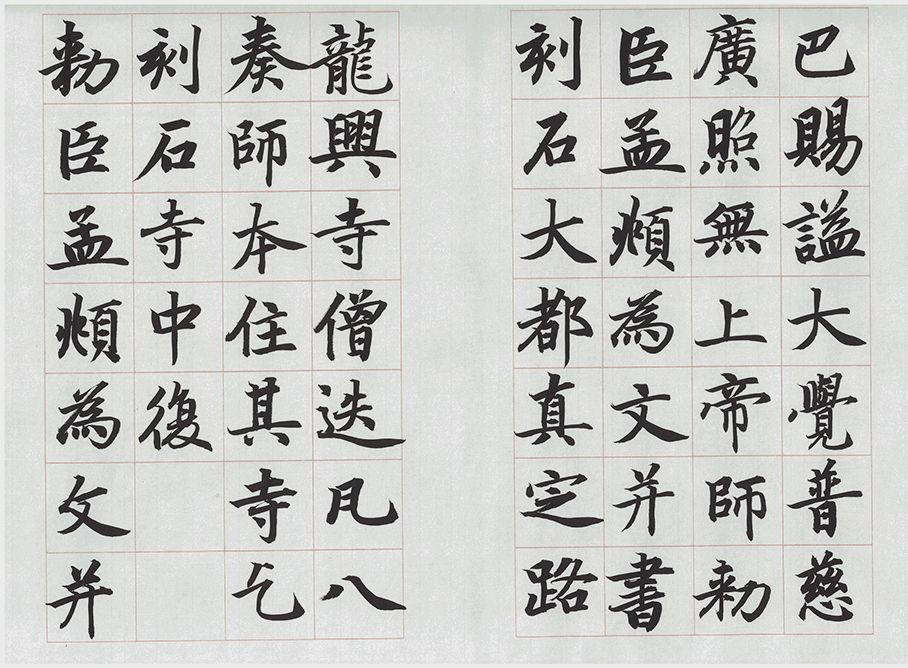 巴賜謚大覺普慈
廣照無上帝師勑
臣孟頫為文并書
刻石大都真定路
龍興寺僧迭凡八
奏師本住其寺乞
刻石寺中復
勑臣孟頫為文并